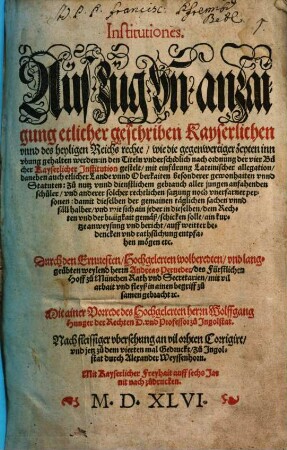 Institutiones.
Auszüg vñ anzai
gung etlicher geschriben Kayserlichen
vnnd des heyligen Reichs rechte / wie die gegenwertiger zeyten inn
vbung gehalten werden: in den Titeln vnderschidlich nach ordnung der vier Bücher
Kayserlicher Institution gestelt / mit einfürung Lateinischer allegation /
daneben auch etlicher Lande vnnd Oberkaiten besonderer gewonhaiten vnnd
Statuten: Zů nutz vnnd dienstlichem gebrauch aller jungen anfahenden
schüler / vnd anderer solcher rechtlichen satzung noch vnerfarner per
sonen: damit dieselben der gemainen täglichen sachen vnnd
fäll halber / vnd wie sich ain jeder in dieselben / dem Rech
ten vnd der billigkait gemäß / schicken solle / ain kur
tze anweysung vnd bericht / auff weitter be
dencken vnd rathschlagung empfa
hen mögen etc.
Durch den Ernuesten / Hochgelerten wolberedten / vnd lang
geübten weylend herrn Andreas Perneder / des Fürstlichen
Hoff zů München Rath vnd Secretarien / mit vil
arbait vnd fleyß in ainen begriff zů
samen gebracht etc.
Mit ainer Vorrede des Hochgelerten herrn Wolffgang
Hunger der Rechten D. vnd Professor zů Ingolstat.
Nach fleissiger vbersehung an vil orthen Corrigirt /
vnd jetz zů dem vierten mal Gedruckt / Zů Ingol
stat durch Alexander Weyssenhorn.
Mit Kayserlicher Freyhait auff sechs Jar
nit nach zůdrucken.
M. D. XLVI.